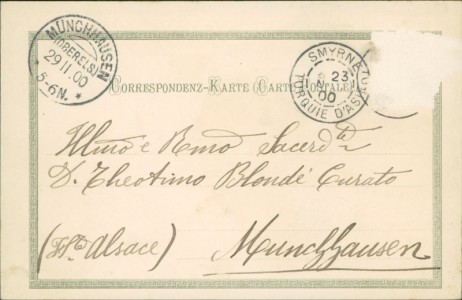 MÜNCHHAUSEN
(OBERELS.)
29 11 00
* 5-6N. *
SMYRNE
23
00
TURQUIE D'ASIE
CORRESPONDENZ-KARTE CARTE POSTALE
Illmo e Rmo Sacerd
D. Theotimo Blondé Curato
Alsace) Munchhausen